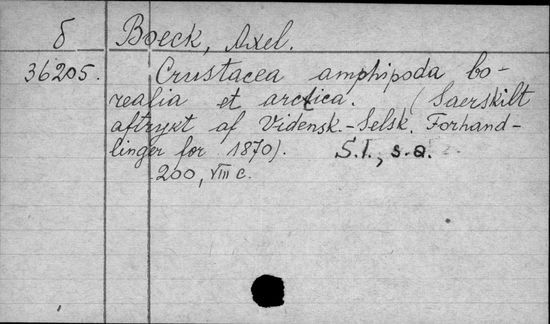 б Boeck, Axel.
36205. Crustacea amphipoda bo-
realia et arctica. (Saerskilt
aftrykt af Vidensk.-Selsk. Forhand-
linger for 1870). S.l., s.a.
200, VIII c.